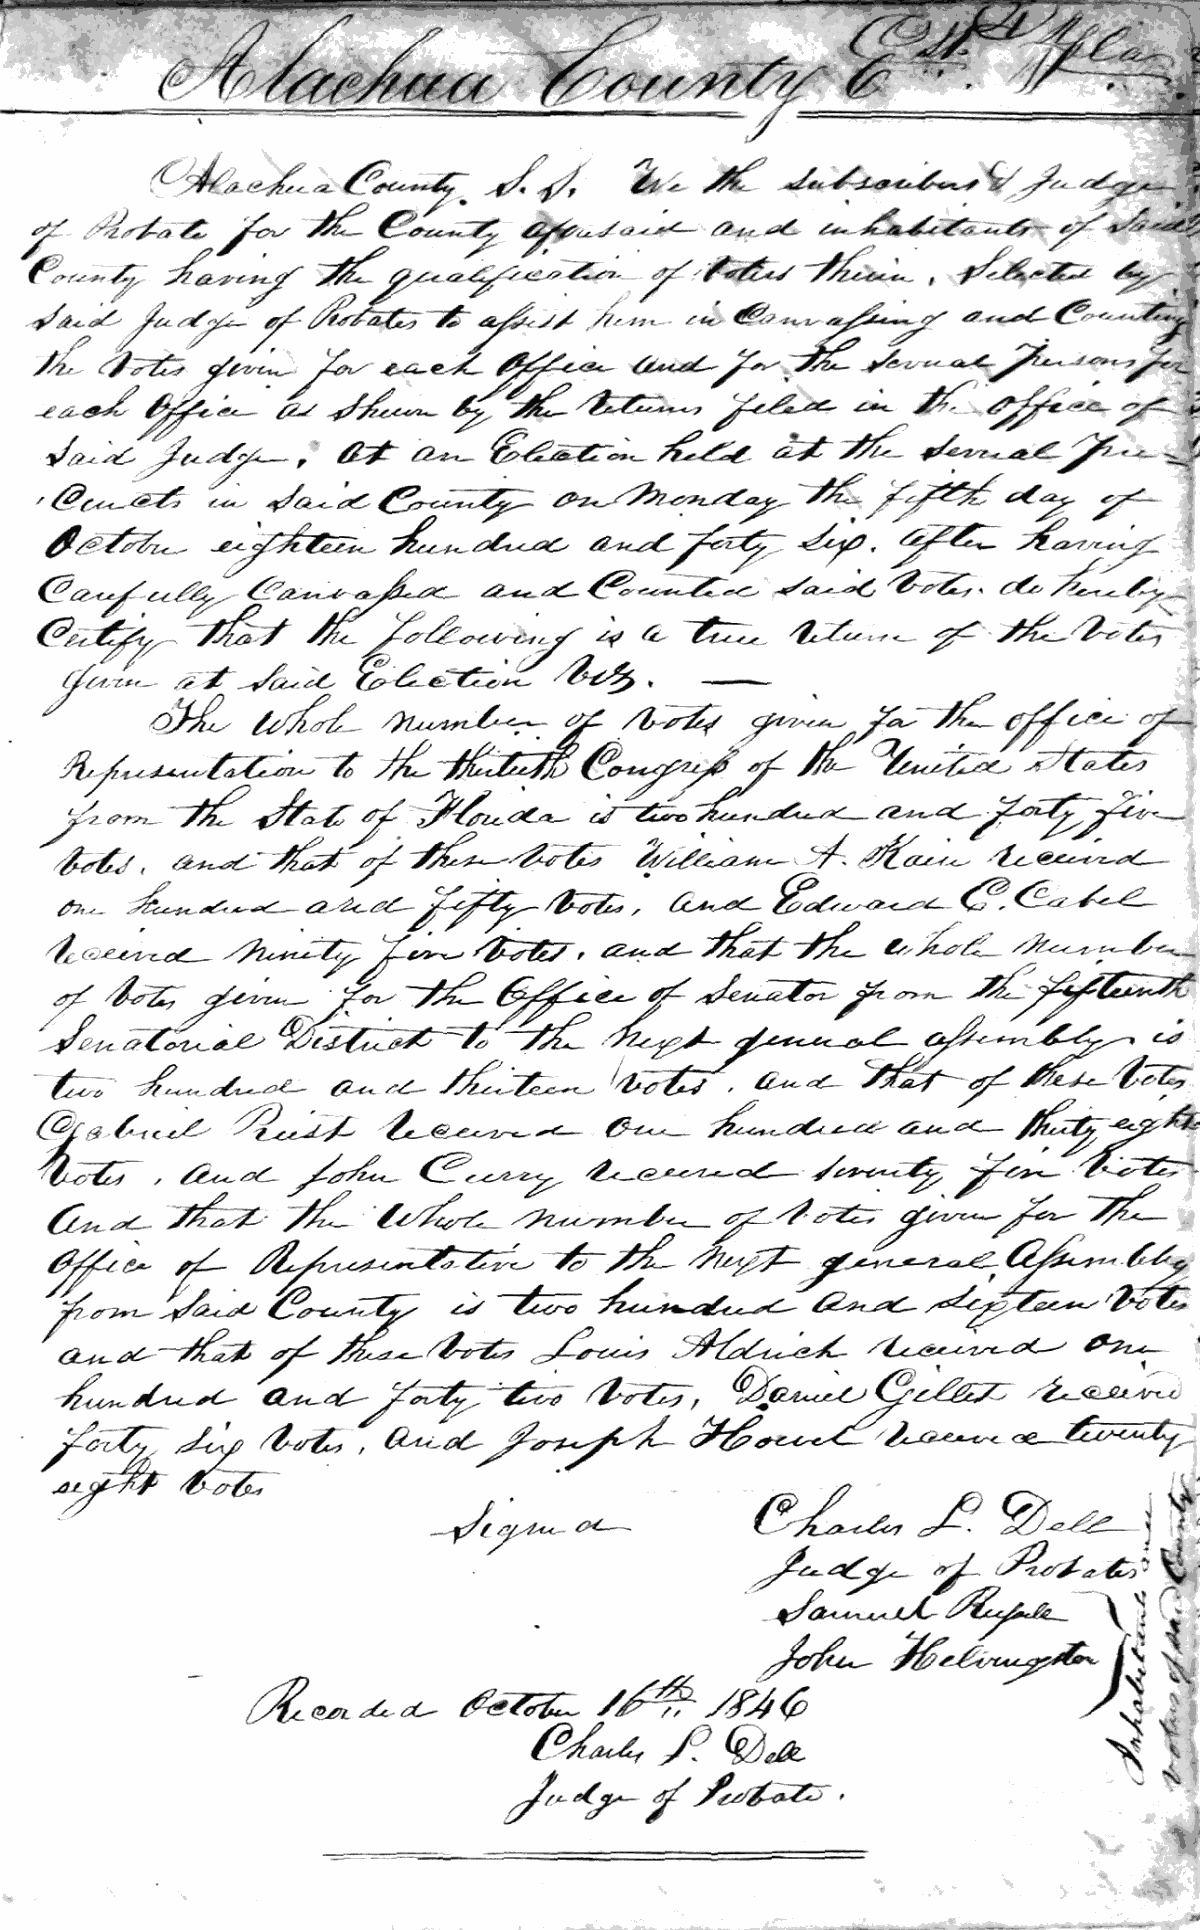 Alachua County Ct. E. Fla.
Alachua County. S. S. We the subscribers Judge
of Probate for the County aforesaid and inhabitants of Said
County having the qualification of Voters therin, Selected by
said Judge of Probates to assist him in Canvassing and Counting
the Votes given for each Office and for the several Persons for
each Office as shewn by the Returns filed in the Office of
Said Judge, at an Election held at the several Pre-
cincts in Said County on Monday the fifth day of
October eighteen hundred and forty six. after having
Carefully Canvassed and Counted said Votes. do hereby
Certify that the following is a true Return of the Votes
given at Said Election Viz. —
The whole number of Votes given for the office of
Representation to the thirtieth Congress of the United States
from the State of Florida is two hundred and forty five
Votes, and that of these Votes William A. Kain received
one hundred and fifty Votes, and Edward C. Cabel
Received Ninety five Votes, and that the whole Number
of Votes given for the Office of Senator from the fifteenth
Senatorial District to the Next general assembly is
two hundred and thirteen Votes, and That of these Votes
Gabriel Priest Received One hundred and thirty eight
Votes, and John Curry received seventy five Votes
And that the Whole number of Votes given for The
Office of Representative to the Next general Assembly
from Said County is two hundred and Sixteen Votes
and that of these Votes Louis Aldrich received one
hundred and forty two Votes, Daniel Gillet received
forty six Votes, and Joseph Howel Receive twenty
eight Votes
Signed Charles L. Dell
Judge of Probates
Samuel Russell
John Helvingston
Inhabitants and
Voters of said County
Recorded October 16th 1846
Charles L. Dell
Judge of Probate.